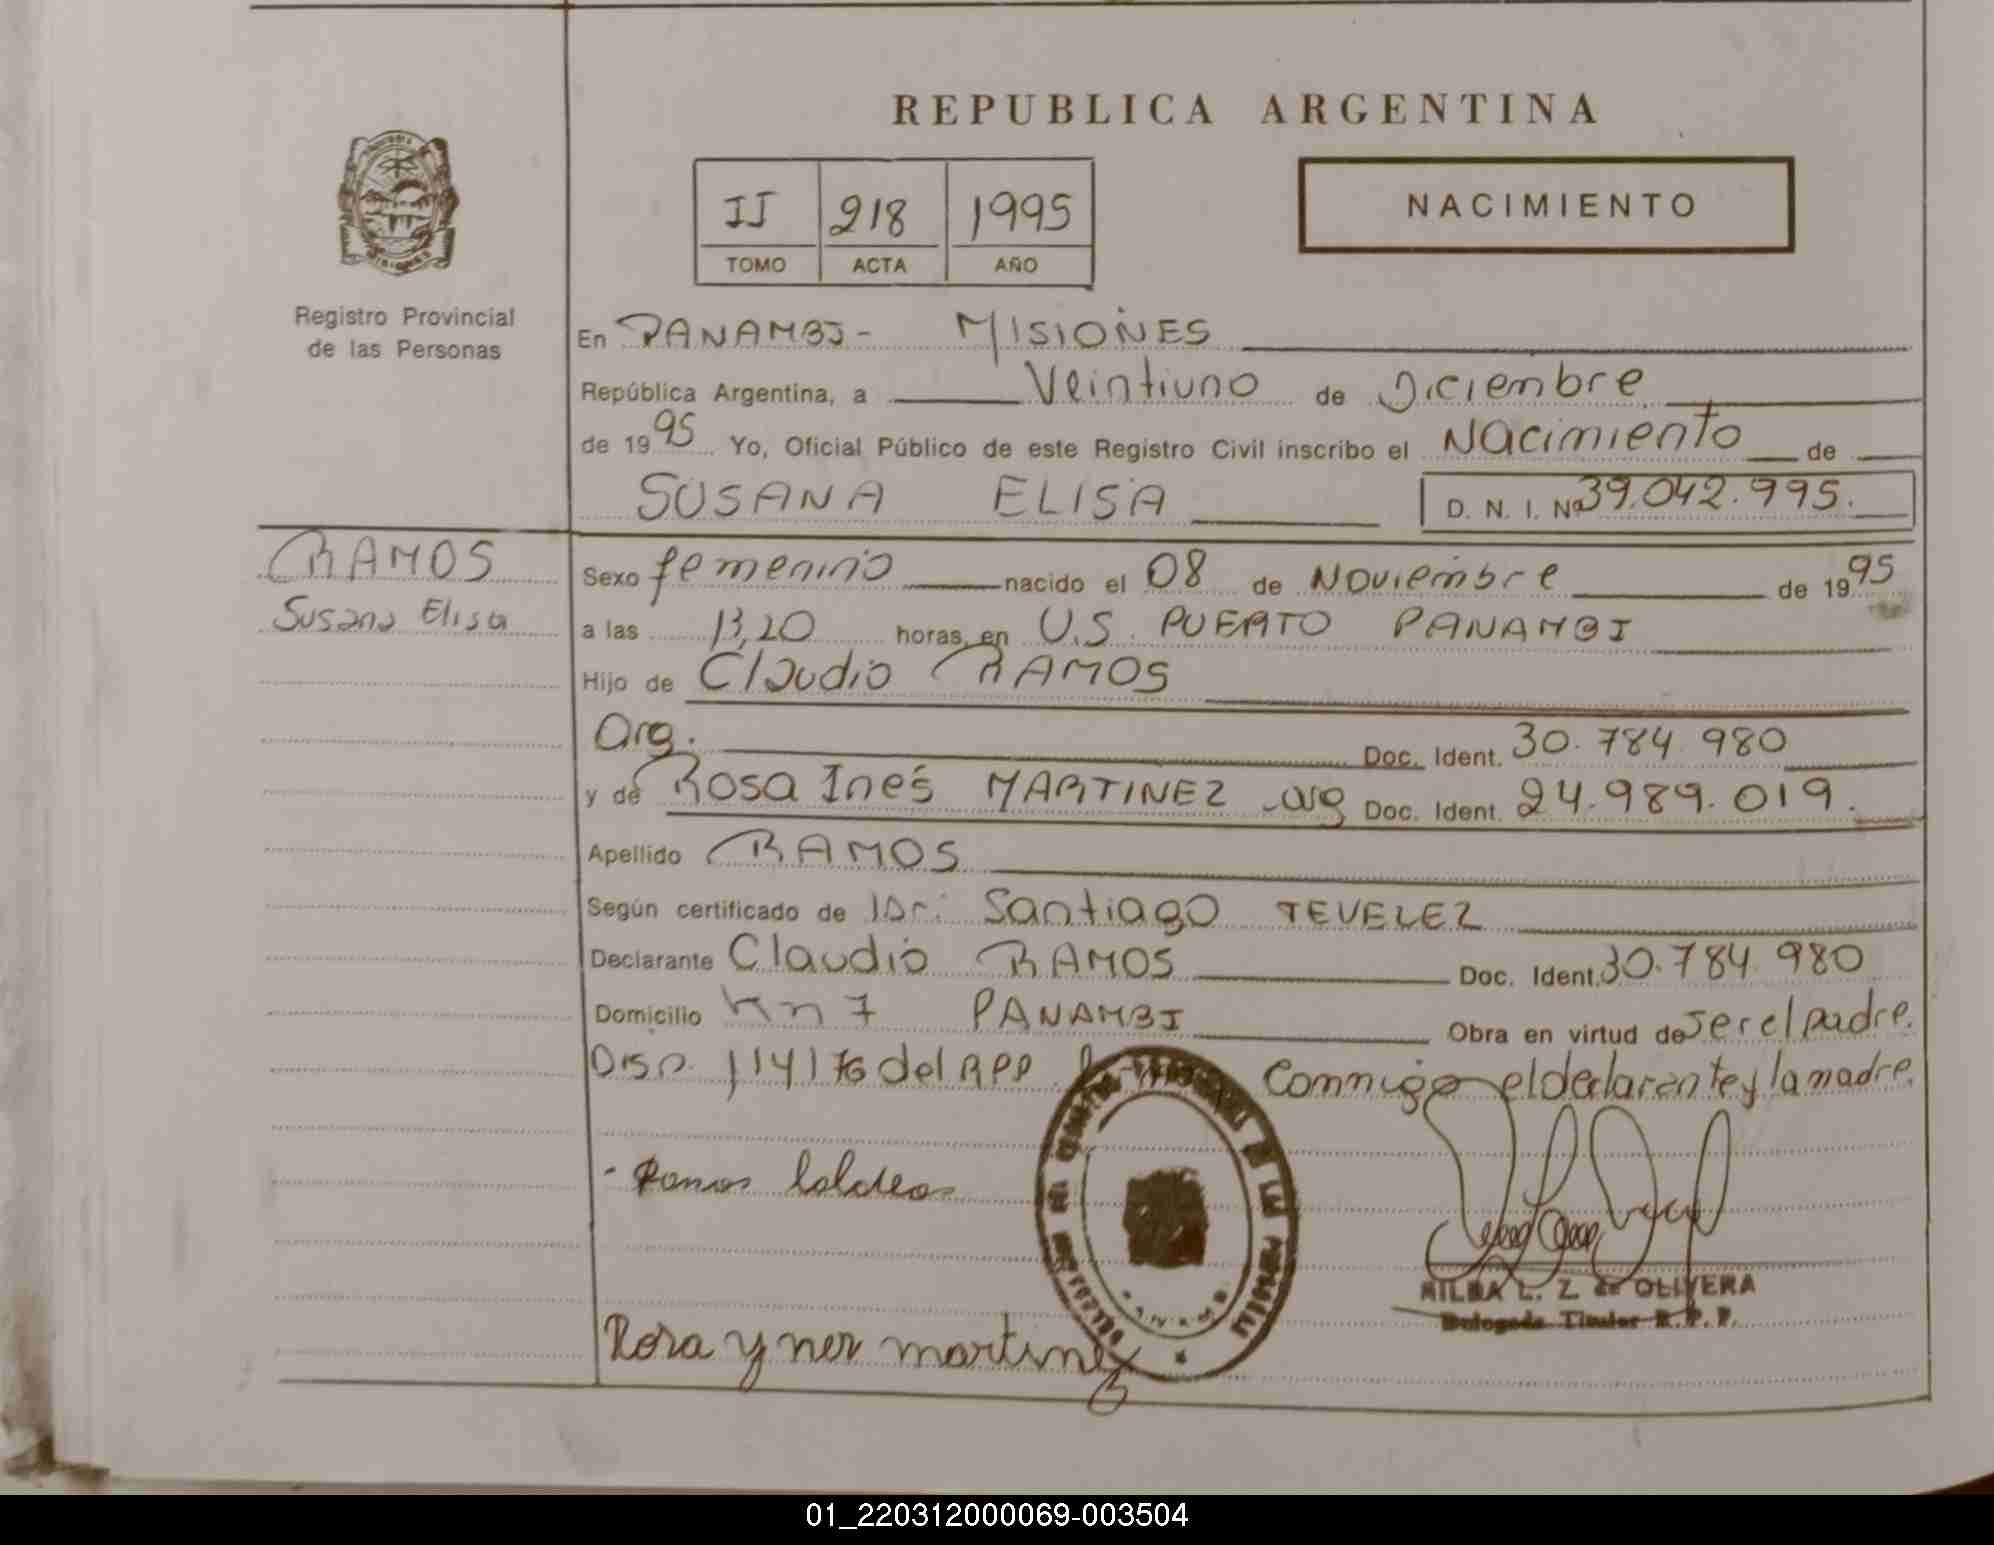 REPUBLICA ARGENTINA
II 218 1995
TOMO ACTA AÑO
NACIMIENTO
Registro Provincial
de las Personas
En PANAMBI - MISIONES
República Argentina, a Veintiuno de Diciembre
de 1995 Yo, Oficial Público de este Registro Civil inscribo el Nacimiento de
SUSANA ELISA D. N. I. Nº 39.042.995.
RAMOS
Susana Elisa
Sexo femenino nacido el 08 de Noviembre de 1995
a las 13,20 horas, en U.S. PUERTO PANAMBI
Hijo de Claudio RAMOS
Arg. Doc. Ident. 30.784.980
y de Rosa Inés MARTINEZ arg Doc. Ident. 24.989.019.
Apellido RAMOS
Según certificado de Dr. Santiago TEVELEZ
Declarante Claudio RAMOS Doc. Ident. 30.784.980
Domicilio Km 7 PANAMBI Obra en virtud de ser el padre.
Disp. 114/76 del RPP. Conmigo el declarante y la madre.
Ramos
Rosa ynes martinez
MILBA L. Z. de OLIVERA
Delegada Titular R. P. P.
01_220312000069-003504